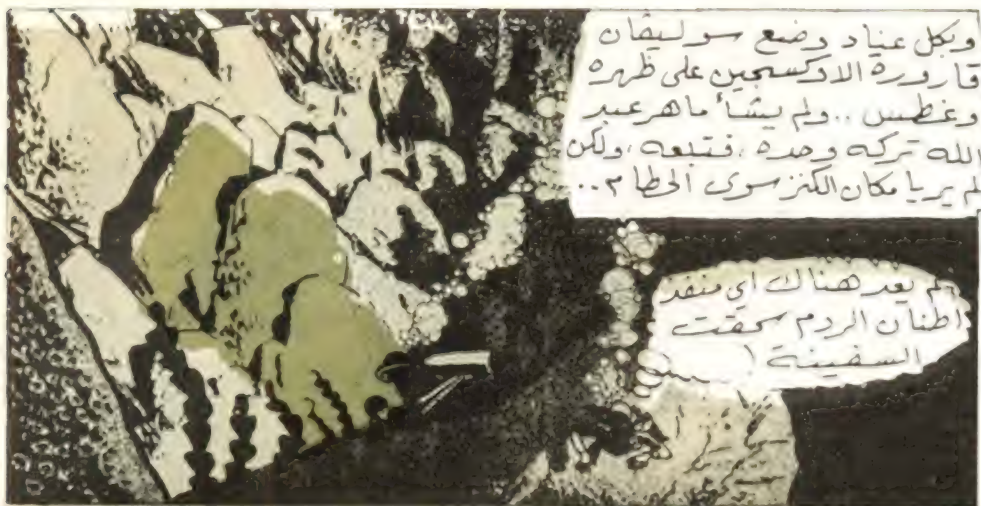 وبكل عناد وضع سوليڤان
قارورة الاوكسجين على ظهره
وغطس .. ولم يشأ ماهر عبد
الله تركه وحده ، فتبعه ، ولكن
لم يريا مكان الكنز سوى الحطام ..
لم يعد هناك اي منفذ
اطنان الردم سحقت
السفينة !